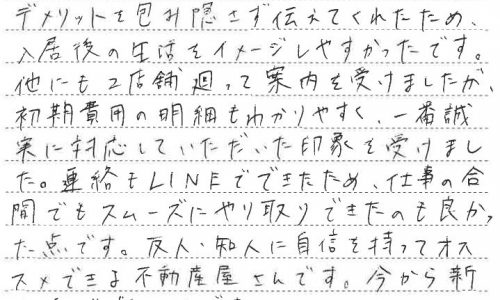 デメリットを包み隠さず伝えてくれたため、
入居後の生活をイメージしやすかったです。
他にも2店舗廻って案内を受けましたが、
初期費用の明細もわかりやすく、一番誠
実に対応していただいた印象を受けまし
た。連絡もLINEでできたため、仕事の合
間でもスムーズにやり取りできたのも良かっ
た点です。友人・知人に自信を持ってオス
スメできる不動産屋さんです。今から新